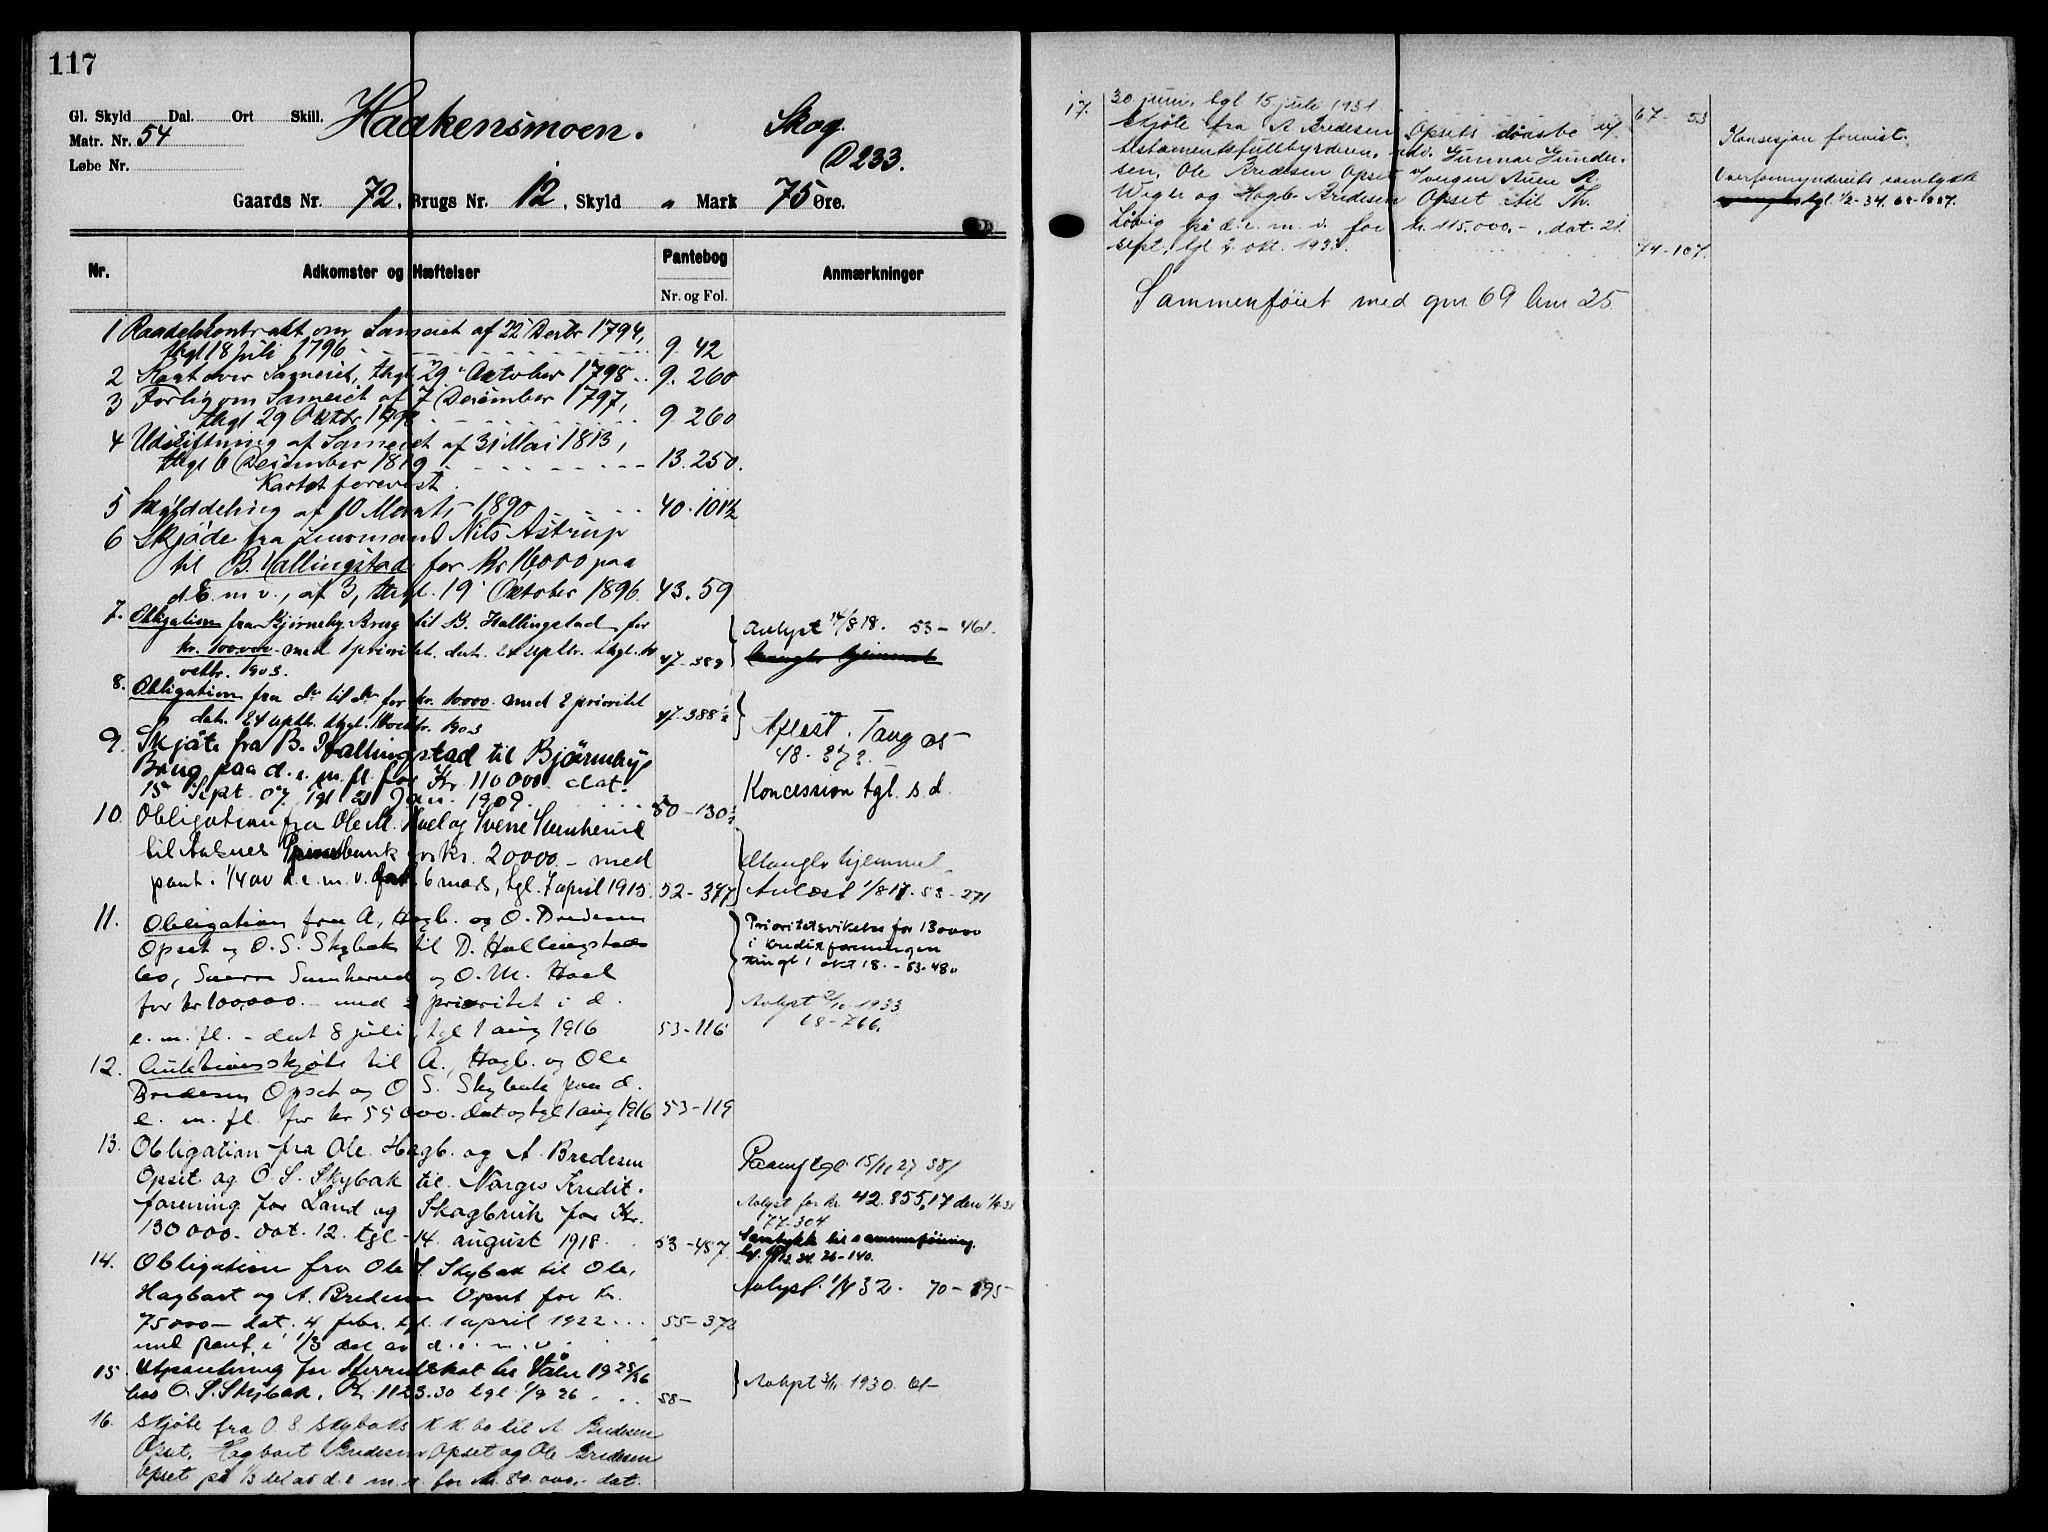 117
Gl. Skyld Dal. Ort Skill. Haakensmoen. Skog.
Matr. Nr. 54
Løbe Nr. D 233.
Gaards Nr. 72, Brugs Nr. 12, Skyld " Mark 75 Øre.
Nr. Adkomster og Hæftelser Pantebog Anmærkninger
Nr. og Fol.
1 Raadelskontrakt om Sameiet af 22 Decbr 1794,
thgl 18 Juli 1796 9. 42
2 over Sameiet, thgl 29 October 1798 9. 260
3 Forlig om Sameiet af 7 December 1797,
thgl 29 Oktbr 1798 9 260
4 Udskiftning af Sameiet af 31 Mai 1813,
thgl 6 December 1819 13. 250.
Kartet forevist.
5 Skylddeling af 10 1890 40. 101½
6 Skjøde fra Lensmand Nils Astrup
til B. Hallingstad for Kr 16,000 paa
d. E. m v., af 3, thgl. 19 Oktober 1896. 43. 59
7. Obligation fra Bjørneby Brug til B. Hallingstad for
kr. 100.000 med 1 prioritet. dat. 24 septbr. thgl. 10
oktbr. 1903. 47-388
Avlyst 14/8 18. 53-461.
8. Obligation fra do til do for kr. 10000 med 2 prioritet
dat. 24 septbr. thgl. 10 oktbr. 1903 47-388½
Aflæst. Tang 05
48-
9. Skjøte fra B. Hallingstad til Bjørneby
Brug paa d. e. m. fl. for Kr 110000 dat.
15 Sept. 07 tgl 21 Jan. 1909. 50-130½
Koncession tgl. s d.
10. Obligation fra Ole M. Hoel og Sverre Sunherud
til Aasnes Privatbank for kr. 20000.- med
pant i ¼ av d. e. m. v. dat. 6 mars, tgl. 7 april 1915. 52-377
Mangler hjemmel
Avlæst 1/8 17. 53-271
11. Obligation fra A., Hagb. og O. Bredesen
Opset og O. S. Skybak til D. Hallingstads
bo, Sverre Sunherud og O. M. Hoel
for kr 100,000.- med 3 prioritet i d.
e. m. fl. - dat 8 juli, tgl 1 aug 1916 53-116
Prioritetsvikelse for 130000
i Kreditforeningen
tingl 1 okt 18. - 53-480
Avlyst 2/10 1933
68-766.
12. Auktionsskjøte til A., Hagb. og Ole
Bredesen Opset og O. S. Skybak paa d.
e. m. fl. for kr 55000. dat og tgl 1 aug 1916 53-119
13. Obligation fra Ole. Hagb. og A. Bredesen
Opset og O. S. Skybak til Norges Kredit-
forening for Land og Skogbruk for Kr.
130000. dat. 12. tgl - 14. august 1918. 53-487
tgl 15/11 27 58/
Avlyst for kr 42.855,17 den
77-304
Samtykke til sammenføining.
14. Obligation fra Ole S. Skybak til Ole,
Hagbart og A. Bredesen Opset for Kr.
75000 - dat. 4 febr. tgl. 1 april 1922 ... 55-372
med pant i 1/3 del av d. e. m. v.
Avlyst. 1/4 32. 70-895
15. Utpantning for Herredskat til Våler 1925/26
hos O. S. Skybak, Kr. 1123.30 tgl. 1/9 26 58-
Avlyst 3/11 1930.
16. Skjøte fra O. S. Skybaks kk bo til A Bredesen
Opset, Hagbart Bredesen Opset og Ole Bredesen
Opset på 1/3 del av d. e m. v. for kr. 80.000,- dat.
30 juni, tgl 15 juli 1931 67-53
17. Skjøte fra A Bredesen Opsets dødsbo v/
testamentsfullbyrderen, adv. Gunnar Gunder-
sen, Ole Bredesen Opset v/vergen A.
og Hagb. Bredesen Opset til Th.
Løvig på d. e. m. v. for kr. 115,000.-, dat. 21
sept. tgl 2 okt. 1933. 74-107.
Konsesjon forevist.
Overformynderiets samtykke
tgl. 1/2-34.
Sammenføiet med gnr 69 bnr 25.